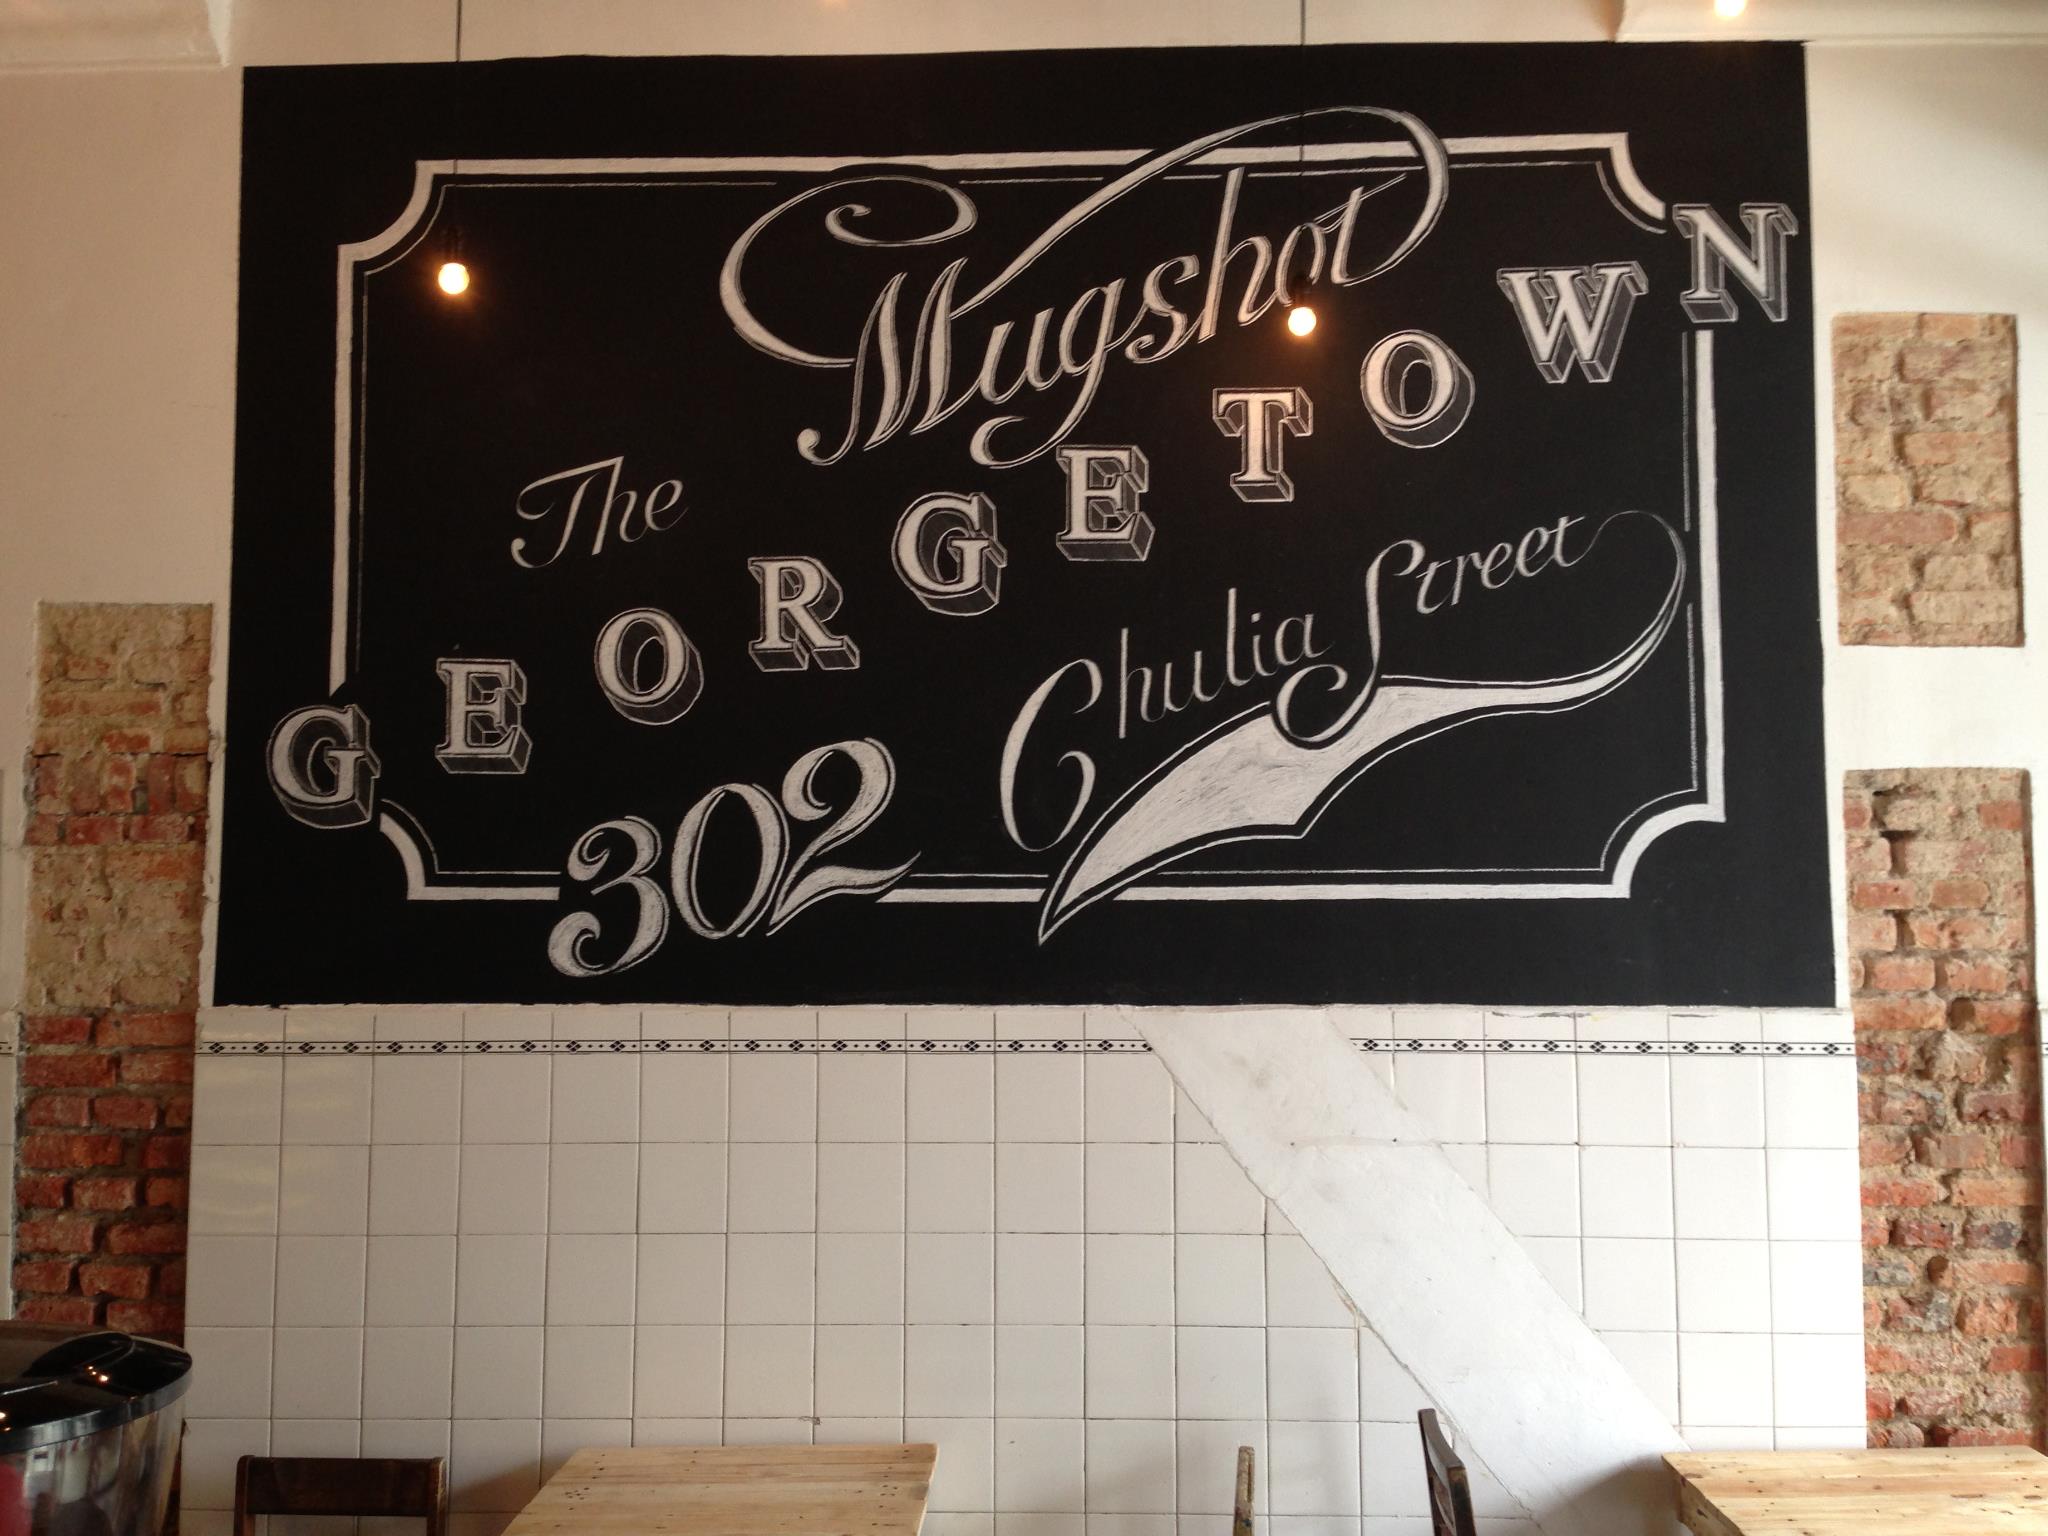 The Mugshot
GEORGETOWN
302 Chulia Street